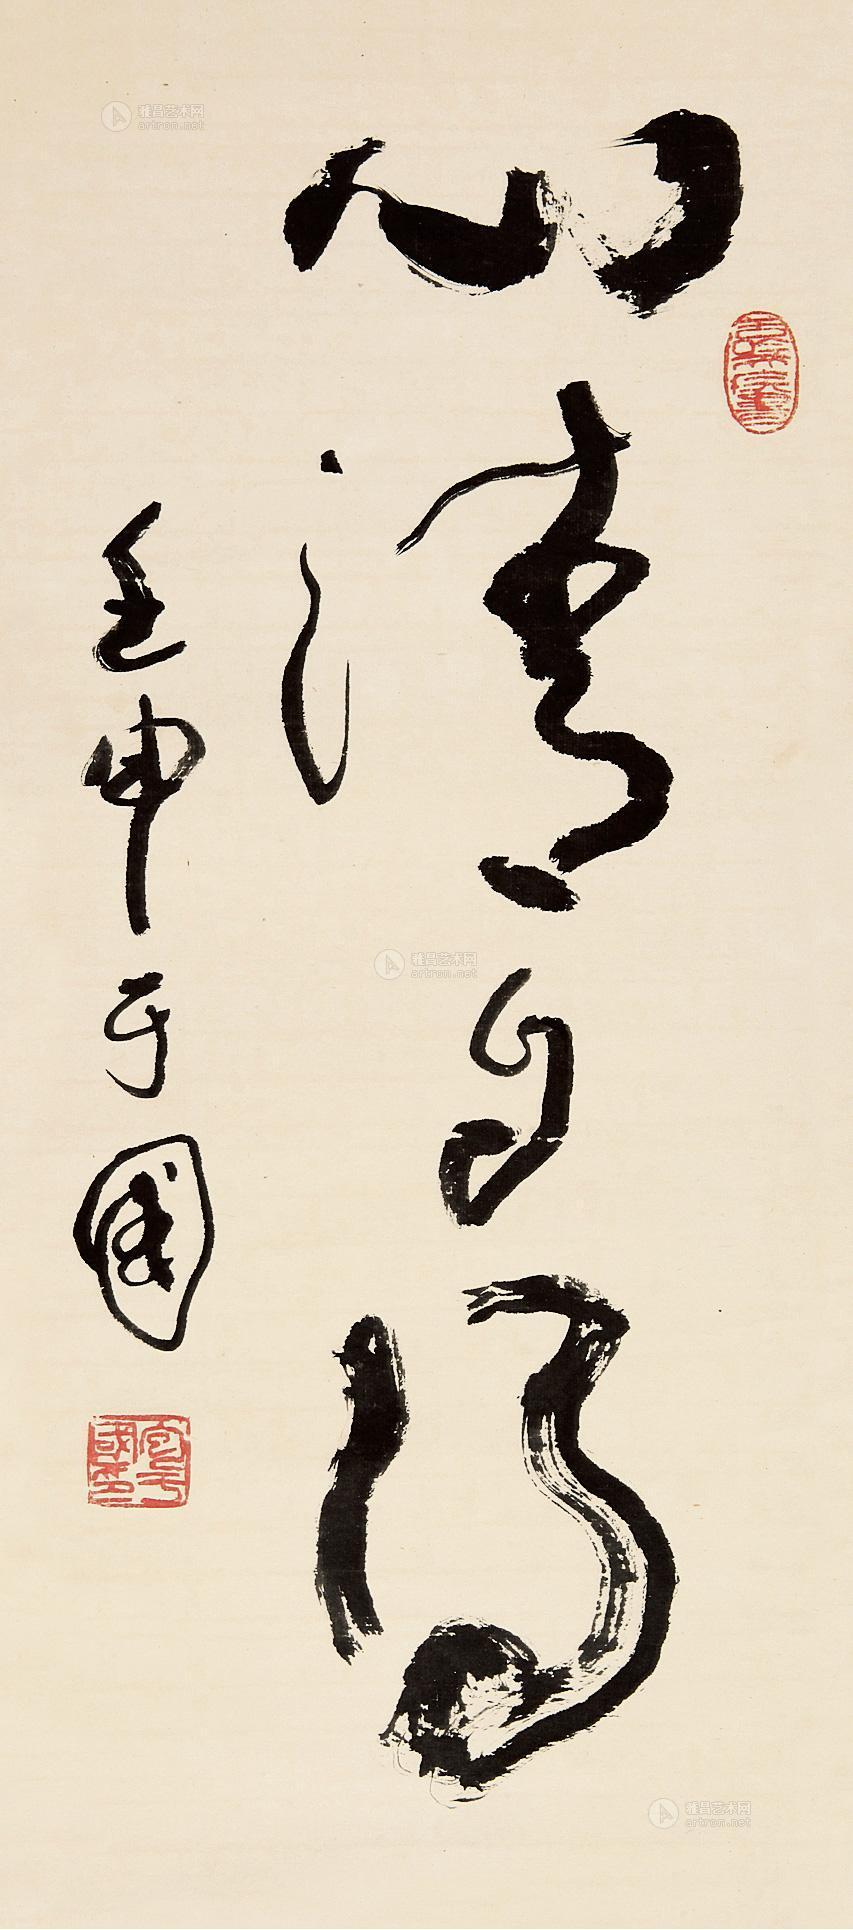 心清自得
壬申于国
雅昌艺术网
artron.net
雅昌艺术网
artron.net
雅昌艺术网
artron.net